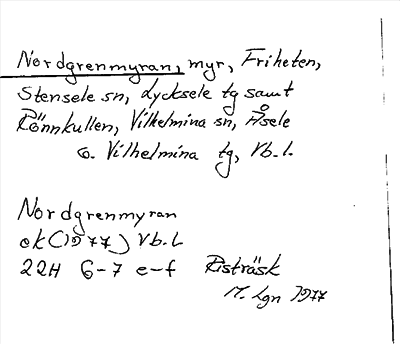 Nordgrenmyran, myr, Friheten,
Stensele sn, Lycksele tg samt
Rönnkullen, Vilhelmina sn, Åsele
o. Vilhelmina tg, Vb. l.
Nordgrenmyran
ek (1977) Vb. l
22H 6-7 e-f Risträsk
M. Lgn 1977